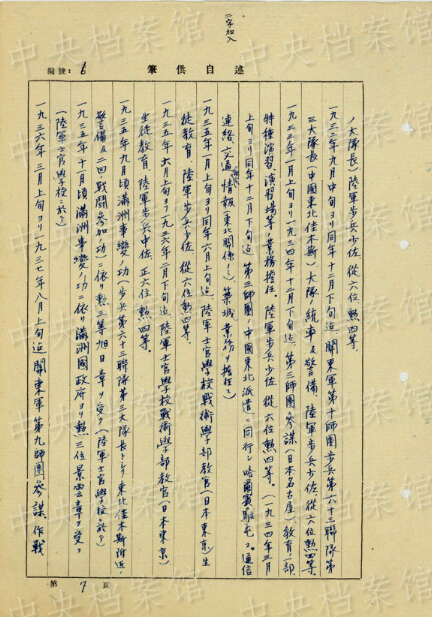 中央档案馆
二字加入
編號： 6
筆供自述
ノ大隊長）陸軍步兵少佐 從六位 勲四等。
一九三二年九月中旬ヨリ同年十二月下旬迄 関東軍第十師團步兵第六十三聯隊第
三大隊長（中國東北佳木斯）大隊ノ統率及警備、陸軍步兵少佐、從六位勲四等。
一九三三年一月上旬ヨリ一九三四年十二月下旬迄 第三師團參謀（日本名古屋）教育ノ一部
特種演習、演習場等ノ業務擔任。陸軍步兵少佐 從六位 勲四等。（一九三四年三月
上旬ヨリ同年十二月下旬迄 第三師團ノ中國東北派遣ニ同行シ哈爾賓駐屯ス。通信
連絡、交通、情報（東北関係ノ）築城業務ヲ擔任）
一九三五年一月上旬ヨリ同年六月上旬迄、陸軍士官學校戰術學部教官（日本東京）生
徒教育、陸軍步兵少佐 從六位勲四等。
一九三五年六月上旬ヨリ一九三六年二月下旬迄 陸軍士官學校戰術學部教官（日本東京）
生徒教育、陸軍步兵中佐 正六位 勲四等。
一九三五年九月頃滿洲事變ノ功（步兵第六十三聯隊第三大隊長トシテ東北佳木斯附近ノ
警備及二回ノ戰鬪參加ノ功）ニ依リ勲三等旭日章ヲ受ク（陸軍士官學校ニ於テ）
一九三五年十一月頃滿洲事變ノ功ニ依リ滿洲國政府ヨリ勲三位景雲章ヲ受ク
（陸軍士官學校ニ於テ）
一九三六年三月上旬ヨリ一九三七年八月上旬迄 関東軍第九師團參謀 作戰
第 7 頁